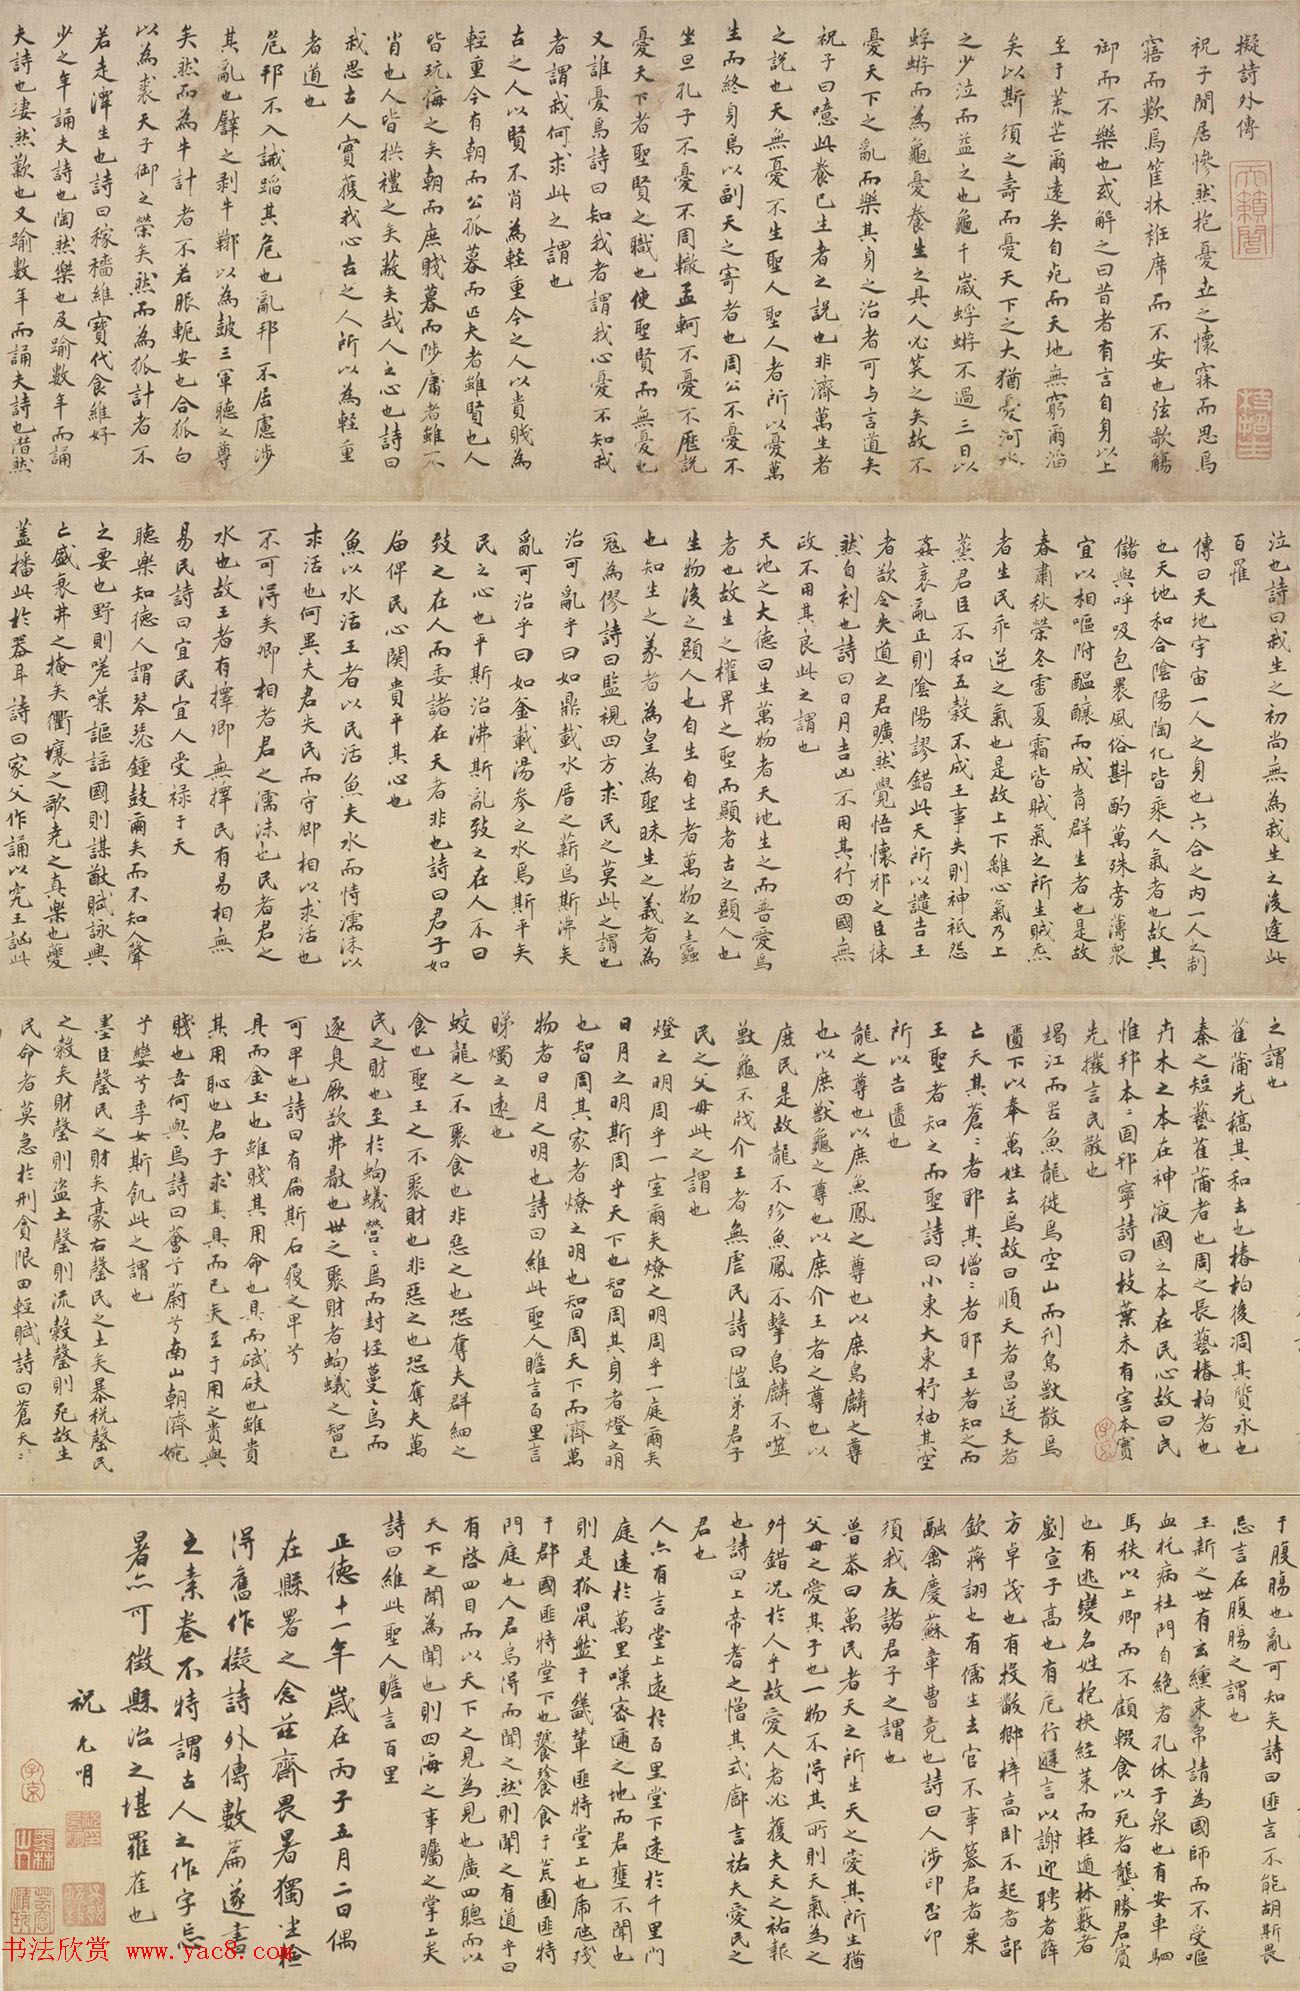 擬詩外傳
祝子閒居慘然抱憂立之懷寐而思焉
寤而歎焉筐牀袵席而不安也弦歌觴
御而不樂也或解之曰昔者有言自身以上
至于荒芒爾遠矣自死而天地無窮爾滔
矣以斯須之壽而憂天下之大猶憂河水
之少泣而益之也龜千歲蜉蝣不過三日以
蜉蝣而為龜憂養生之具人必笑之矣故不
憂天下之亂而樂其身之治者可与言道矣
祝子曰噫此養己生者之說也非濟萬生者
之說也天無憂不生聖人聖人者所以憂萬
生而終身焉以副天之寄者也周公不憂不
坐旦孔子不憂不周轍孟軻不憂不歷說
憂天下者聖賢之職也使聖賢而無憂也
又誰憂焉詩曰知我者謂我心憂不知我
者謂我何求此之謂也
古之人以賢不肖為輕重今之人以貴賤為
輕重今有朝而公孤暮而匹夫者雖賢也人
皆玩侮之矣朝而庶賤暮而陟庸者雖不
肖也人皆拱禮之矣蔽矣哉人之心也詩曰
我思古人實獲我心古之人所以為輕重
者道也
危邦不入誡蹈其危也亂邦不居慮涉
其亂也譬之剥牛鞹以為鼓三軍聽之尊
矣然而為牛計者不若服軛安也合狐白
以為裘天子御之榮矣然而為狐計者不
若走澤生也詩曰稼穡維寶代食維好
少之年誦夫詩也陶然樂也及踰數年而誦
夫詩也淒然歎也又踰數年而誦夫詩也潸然
泣也詩曰我生之初尚無為我生之後逢此
百罹
傳曰天地宇宙一人之身也六合之内一人之制
也天地和合陰陽陶化皆乘人氣者也故其
儲與呼吸包裹風俗斟酌萬殊旁薄眾
宜以相嘔附醞釀而成育群生者也是故
春肅秋榮冬雷夏霜皆賊氣之所生賊炁
者生民乖逆之氣也是故上下離心氣乃上
蒸君臣不和五穀不成王事失則神祇怨
姦哀亂正則陰陽謬錯此天所以譴告王
者欲令失道之君曠然覺悟懷邪之臣悚
然自刻也詩曰日月告凶不用其行四國無
政不用其良此之謂也
天地之大德曰生萬物者天地生之而普愛焉
者也故生之權畀之聖而顯者古之顯人也
生物後之顯人也自生自生者萬物之蠹
也知生之義者為皇為聖昧生之義者為
寇為僇詩曰監視四方求民之莫此之謂也
治可亂乎曰如鼎載水厝之薪焉斯沸矣
亂可治乎曰如釜載湯參之水焉斯平矣
民之心也平斯治沸斯亂致之在人不曰
致之在人而委諸在天者非也詩曰君子如
届俾民心闋貴平其心也
魚以水活王者以民活魚失水而恃濡沫以
求活也何異夫君失民而守卿相以求活也
不可得矣卿相者君之濡沫也民者君之
水也故王者有擇卿無擇民有易相無
易民詩曰宜民宜人受祿于天
聽樂知德人謂琴瑟鍾鼓爾矣而不知人聲
之要也野則嗟嘆謳謠國則謀猷賦詠興
亡盛衰弗之掩矣衢壤之歌堯之真樂也夔
蓋播此於器耳詩曰家父作誦以究王訩此
之謂也
萑蒲先稿其和去也椿柏後凋其質永也
秦之短藝萑蒲者也周之長藝椿柏者也
卉木之本在神液國之本在民心故曰民
惟邦本本固邦寧詩曰枝葉未有害本實
先撥言民散也
竭江而罟魚龍徙焉空山而刊鳥獸散焉
匱下以奉萬姓去焉故曰順天者昌逆天者
亡天其蒼蒼者耶其增增者耶王者知之而
王聖者知之而聖詩曰小東大東杼柚其空
所以告匱也
龍之尊也以庶魚鳳之尊也以庶鳥麟之尊
也以庶獸龜之尊也以庶介王者之尊也以
庶民是故龍不殄魚鳳不擊鳥麟不噬
獸龜不戕介王者無虐民詩曰愷弟君子
民之父母此之謂也
燈之明周乎一室爾矣燎之明周乎一庭爾矣
日月之明斯周乎天下也智周其身者燈之明
也智周其家者燎之明也智周天下而濟萬
物者日月之明也詩曰維此聖人瞻言百里言
睇燭之遠也
蛟龍之不聚食也非惡之也恐奪夫群細之
食也聖王之不聚財也非惡之也恐奪夫萬
民之財也至於蚼蟻營營焉而封垤蔓蔓焉而
逐臭厥欲弗厭也世之聚財者蚼蟻之智已
可卑也詩曰有扁斯石履之卑兮
具而金玉也雖賤其用命也具而碔砆也雖貴
其用恥也君子求其具而已矣至于用之貴與
賤也吾何與焉詩曰薈兮蔚兮南山朝隮婉
兮孌兮季女斯飢此之謂也
墨臣罄民之財矣豪右罄民之土矣暴稅罄民
之穀矣財罄則盜土罄則流穀罄則死故生
民命者莫急於刑貪限田輕賦詩曰蒼天蒼天
于腹腸也亂可知矣詩曰匪言不能胡斯畏
忌言在腹腸之謂也
王新之世有玄纁束帛請為國師而不受嘔
血托病杜門自絕者孔休于泉也有安車駟
馬秩以上卿而不顧輟食以死者龔勝君賓
也有逃變名姓抱挾經策而輕遁林藪者
劉宣子高也有危行遜言以謝迎聘者薛
方卓茂也有投黻鄉梓高卧不起者郭
欽蔣詡也有儒生去官不事篡君者栗
融禽慶蘇章曹竟也詩曰人涉卬否卬
須我友諸君子之謂也
曾恭曰萬民者天之所生天之愛其所生猶
父母之愛其子也一物不得其所則天氣為之
舛錯況於人乎故愛人者必獲夫天之祐報
也詩曰上帝耆之憎其式廓言祐夫愛民之
君也
人亦有言堂上遠於百里堂下遠於千里門
庭遠於萬里嘆密邇之地而君壅不聞也
則是狐鼠盤于畿輦匪特堂上也虎虺殘
于郡國匪特堂下也饕餮食于荒圉匪特
門庭也人君烏得而聞之然則聞之有道乎曰
有啓四目而以天下之見為見也廣四聰而以
天下之聞為聞也則四海之事矚之掌上矣
詩曰維此聖人瞻言百里
正德十一年歲在丙子五月二日偶
在縣署之念茲齋畏暑獨坐檢
得舊作擬詩外傳數篇遂書
之素卷不特謂古人之作字忘
暑亦可徵縣治之堪羅雀也
祝允明
书法欣赏 www.yac8.com